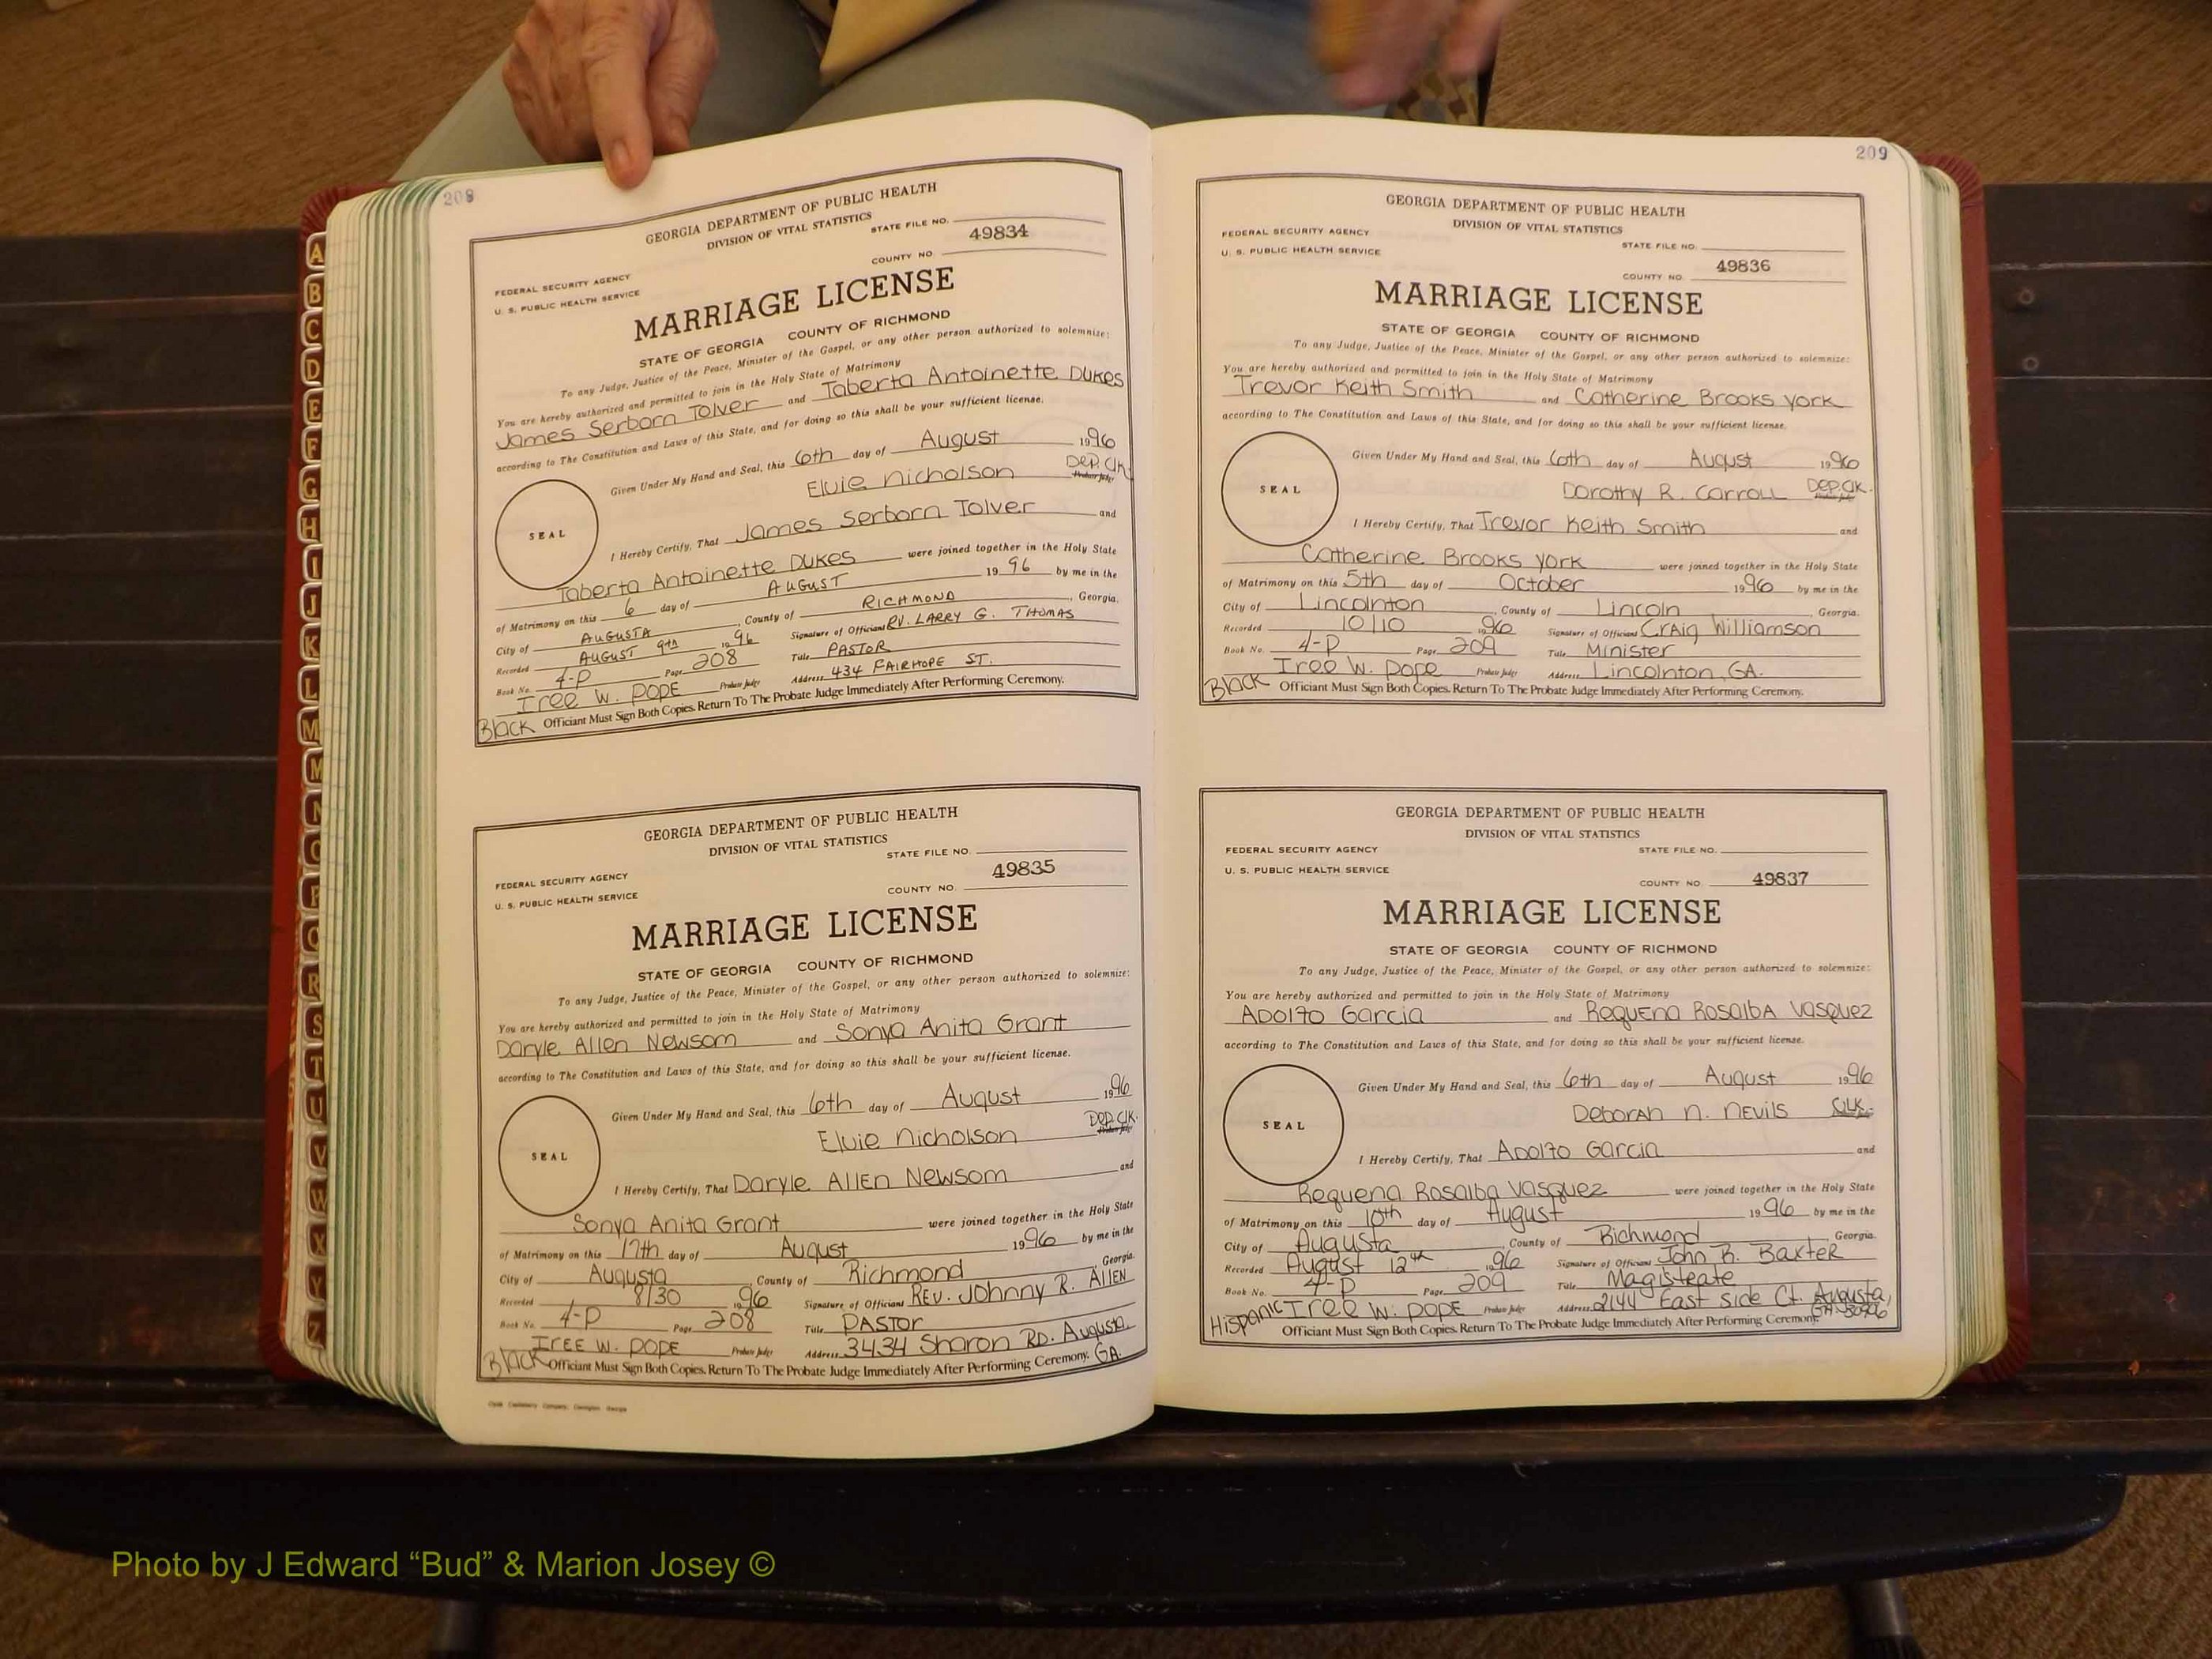 208
GEORGIA DEPARTMENT OF PUBLIC HEALTH
DIVISION OF VITAL STATISTICS
STATE FILE NO.
49834
COUNTY NO.
FEDERAL SECURITY AGENCY
U. S. PUBLIC HEALTH SERVICE
MARRIAGE LICENSE
STATE OF GEORGIA COUNTY OF RICHMOND
To any Judge, Justice of the Peace, Minister of the Gospel, or any other person authorized to solemnize:
You are hereby authorized and permitted to join in the Holy State of Matrimony
James Serborn Tolver and Taberta Antoinette Dukes
according to The Constitution and Laws of this State, and for doing so this shall be your sufficient license.
Given Under My Hand and Seal, this 6th day of August 1996
Elvie Nicholson Dep. Clk. Probate Judge
SEAL
I Hereby Certify, That James Serborn Tolver and
Taberta Antoinette Dukes were joined together in the Holy State
of Matrimony on this 6 day of AUGUST 1996 by me in the
City of AUGUSTA, County of RICHMOND, Georgia.
Recorded AUGUST 9th 1996 Signature of Official RV. LARRY G. THOMAS
Book No. 4-P Page 208 Title PASTOR
Iree W. Pope Probate Judge Address 434 FAIRHOPE ST.
Black Officiant Must Sign Both Copies. Return To The Probate Judge Immediately After Performing Ceremony.
GEORGIA DEPARTMENT OF PUBLIC HEALTH
DIVISION OF VITAL STATISTICS
STATE FILE NO.
49835
FEDERAL SECURITY AGENCY
COUNTY NO.
U. S. PUBLIC HEALTH SERVICE
MARRIAGE LICENSE
STATE OF GEORGIA COUNTY OF RICHMOND
To any Judge, Justice of the Peace, Minister of the Gospel, or any other person authorized to solemnize:
You are hereby authorized and permitted to join in the Holy State of Matrimony
Daryle Allen Newsom and Sonya Anita Grant
according to The Constitution and Laws of this State, and for doing so this shall be your sufficient license.
Given Under My Hand and Seal, this 6th day of August 1996
Elvie Nicholson Dep. Clk. Probate Judge
SEAL
I Hereby Certify, That Daryle Allen Newsom and
Sonya Anita Grant were joined together in the Holy State
of Matrimony on this 17th day of August 1996 by me in the
City of Augusta, County of Richmond, Georgia.
Recorded 8/30 1996 Signature of Official Rev. Johnny R. Allen
Book No. 4-P Page 208 Title Pastor
Iree W. Pope Probate Judge Address 3434 Sharon Rd. Augusta, GA.
Black Officiant Must Sign Both Copies. Return To The Probate Judge Immediately After Performing Ceremony.
209
GEORGIA DEPARTMENT OF PUBLIC HEALTH
DIVISION OF VITAL STATISTICS
FEDERAL SECURITY AGENCY
STATE FILE NO.
U. S. PUBLIC HEALTH SERVICE
49836
COUNTY NO.
MARRIAGE LICENSE
STATE OF GEORGIA COUNTY OF RICHMOND
To any Judge, Justice of the Peace, Minister of the Gospel, or any other person authorized to solemnize:
You are hereby authorized and permitted to join in the Holy State of Matrimony
Trevor Keith Smith and Catherine Brooks York
according to The Constitution and Laws of this State, and for doing so this shall be your sufficient license.
Given Under My Hand and Seal, this 6th day of August 1996
Dorothy R. Carroll Dep. Clk. Probate Judge
SEAL
I Hereby Certify, That Trevor Keith Smith and
Catherine Brooks York were joined together in the Holy State
of Matrimony on this 5th day of October 1996 by me in the
City of Lincolnton, County of Lincoln, Georgia.
Recorded 10/10 1996 Signature of Official Craig Williamson
Book No. 4-P Page 209 Title Minister
Iree W. Pope Probate Judge Address Lincolnton, GA.
Black Officiant Must Sign Both Copies. Return To The Probate Judge Immediately After Performing Ceremony.
GEORGIA DEPARTMENT OF PUBLIC HEALTH
DIVISION OF VITAL STATISTICS
FEDERAL SECURITY AGENCY
STATE FILE NO.
U. S. PUBLIC HEALTH SERVICE
COUNTY NO. 49837
MARRIAGE LICENSE
STATE OF GEORGIA COUNTY OF RICHMOND
To any Judge, Justice of the Peace, Minister of the Gospel, or any other person authorized to solemnize:
You are hereby authorized and permitted to join in the Holy State of Matrimony
Adolfo Garcia and Requena Rosalba Vasquez
according to The Constitution and Laws of this State, and for doing so this shall be your sufficient license.
Given Under My Hand and Seal, this 6th day of August 1996
Deborah N. Nevils Clk.
SEAL
I Hereby Certify, That Adolfo Garcia and
Requena Rosalba Vasquez were joined together in the Holy State
of Matrimony on this 10th day of August 1996 by me in the
City of Augusta, County of Richmond, Georgia.
Recorded August 12th 1996 Signature of Official John R. Baxter
Book No. 4-P Page 209 Title Magistrate
Iree W. Pope Probate Judge Address 2144 East Side Ct. Augusta, GA. 30906
Hispanic Officiant Must Sign Both Copies. Return To The Probate Judge Immediately After Performing Ceremony.
A
B
C
D
E
F
G
H
I
J
K
L
M
M
N
O
P
Q
R
S
T
U
V
W
X
Y
Z
Photo by J Edward “Bud” & Marion Josey ©